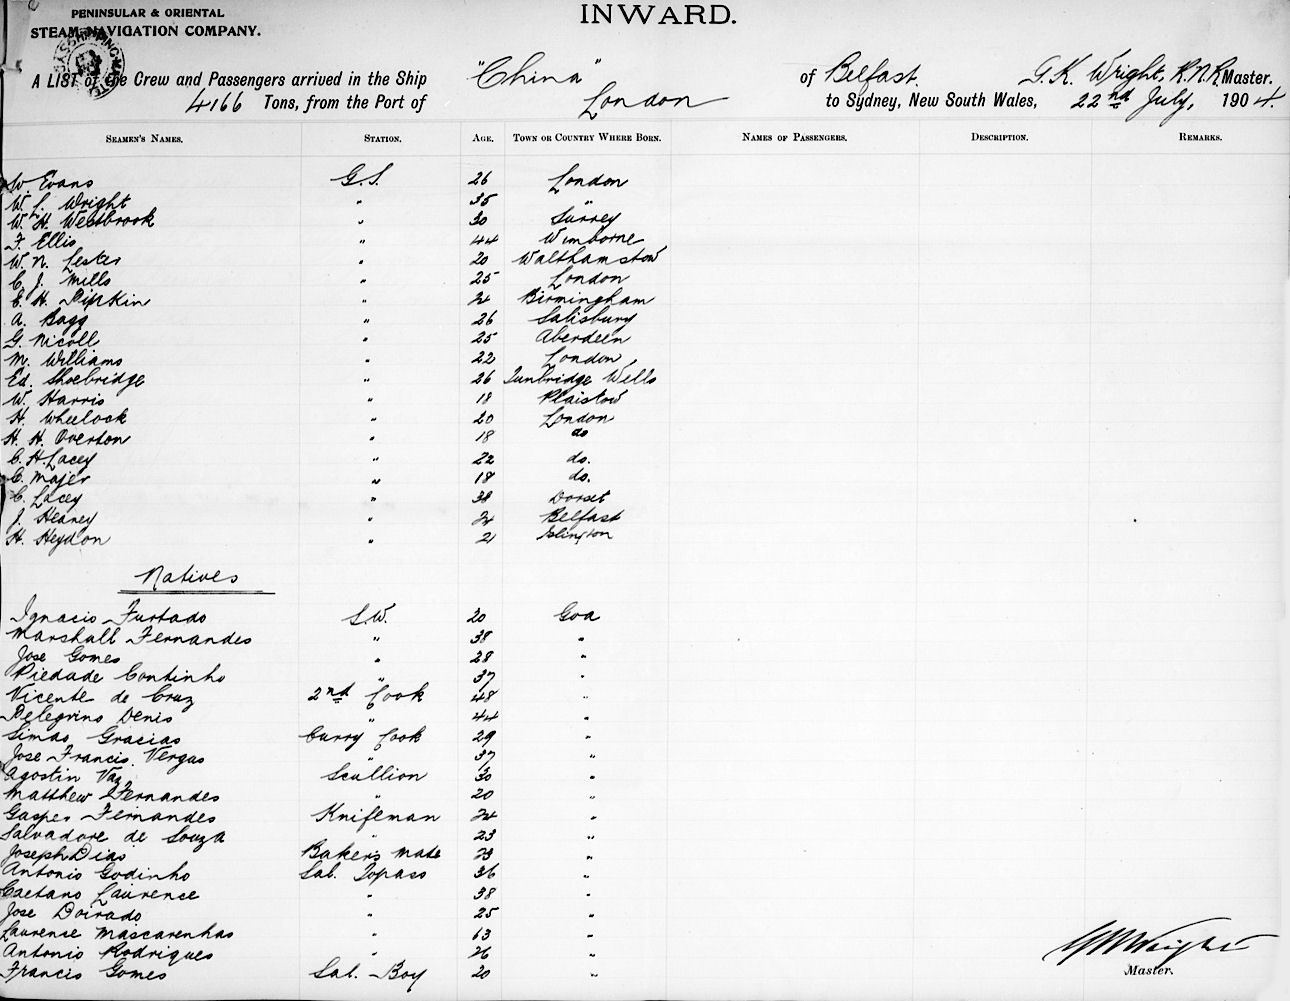 PENINSULAR & ORIENTAL
STEAM NAVIGATION COMPANY.
INWARD.
A LIST of the Crew and Passengers arrived in the Ship "China" of Belfast. G. K. Wright, R.N.R. Master.
4166 Tons, from the Port of London to Sydney, New South Wales, 22nd July, 1904.
SEAMEN'S NAMES. STATION. AGE. TOWN OR COUNTRY WHERE BORN. NAMES OF PASSENGERS. DESCRIPTION. REMARKS.
W. Evans G.S. 26 London
W. L. Wright " 35 "
W. H. Westbrook " 30 Surrey
F. Ellis " 44 Wimborne
W. N. Lester " 20 Walthamstow
C. J. Mills " 25 London
E. H. Pipkin " 24 Birmingham
A. Bagg " 26 Salisbury
G. Nicoll " 25 Aberdeen
M. Williams " 22 London
Ed. Shoebridge " 26 Tunbridge Wells
W. Harris " 18 Plaistow
H. Wheelock " 20 London
H. H. Overton " 18 do
C. H. Lacey " 22 do.
C. Majer " 18 do.
C. Lacey " Dorset
J. Heaney " 24 Belfast
H. Heydon " 21 Islington
Natives
Ignacio Furtado S.W. 20 Goa
Marshall Fernandes " 38 "
Jose Gomes " 28 "
Piedade Continho " 37 "
Vicente de Cruz 2nd Cook 48 "
Pelegrino Denis " 44 "
Simao Gracias Curry Cook 29 "
Jose Francis. Vergas " 37 "
Agostin Vaz Scullion 30 "
Matthew Fernandes " 20 "
Gasper Fernandes Knifeman 24 "
Salvadore de Souza " 23 "
Joseph Dias Bakers Mate 23 "
Antonio Godinho Sal. Topass 36 "
Caetano Laurence " 38 "
Jose Doirado " 25 "
Laurence Mascarenhas " 63 "
Antonio Rodrigues " 26 "
Francis Gomes Sal. Boy 20 "
G K Wright
Master.